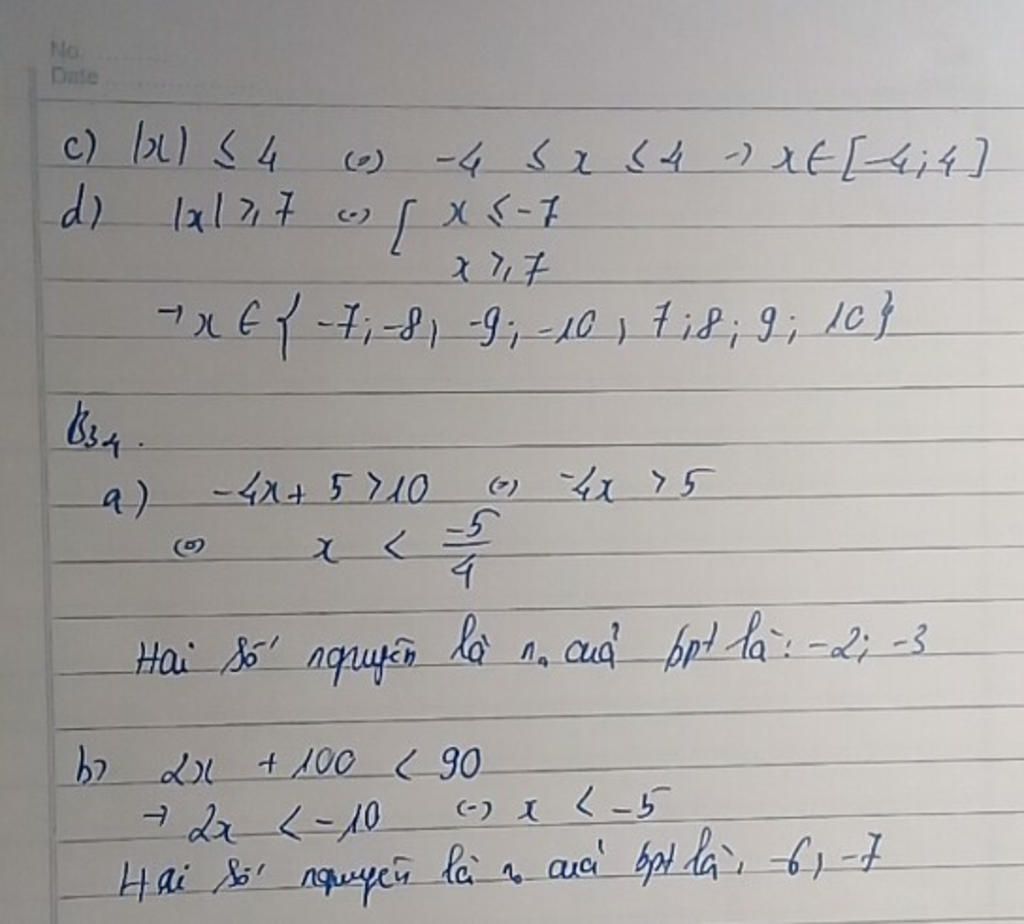 No.
Date
c) |x| ≤ 4 (=) -4 ≤ x ≤ 4 → x ∈ [-4; 4]
d) |x| ≥ 7 (=) [ x ≤ -7
x ≥ 7
→ x ∈ { -7; -8; -9; -10; 7; 8; 9; 10}
B34.
a) -4x + 5 > 10 (=) -4x > 5
(=) x < -5/4
Hai số nguyên là n0 cuả bpt là: -2; -3
b) 2x + 100 < 90
→ 2x < -10 (=) x < -5
Hai số nguyên là n0 cuả bpt là: -6; -7